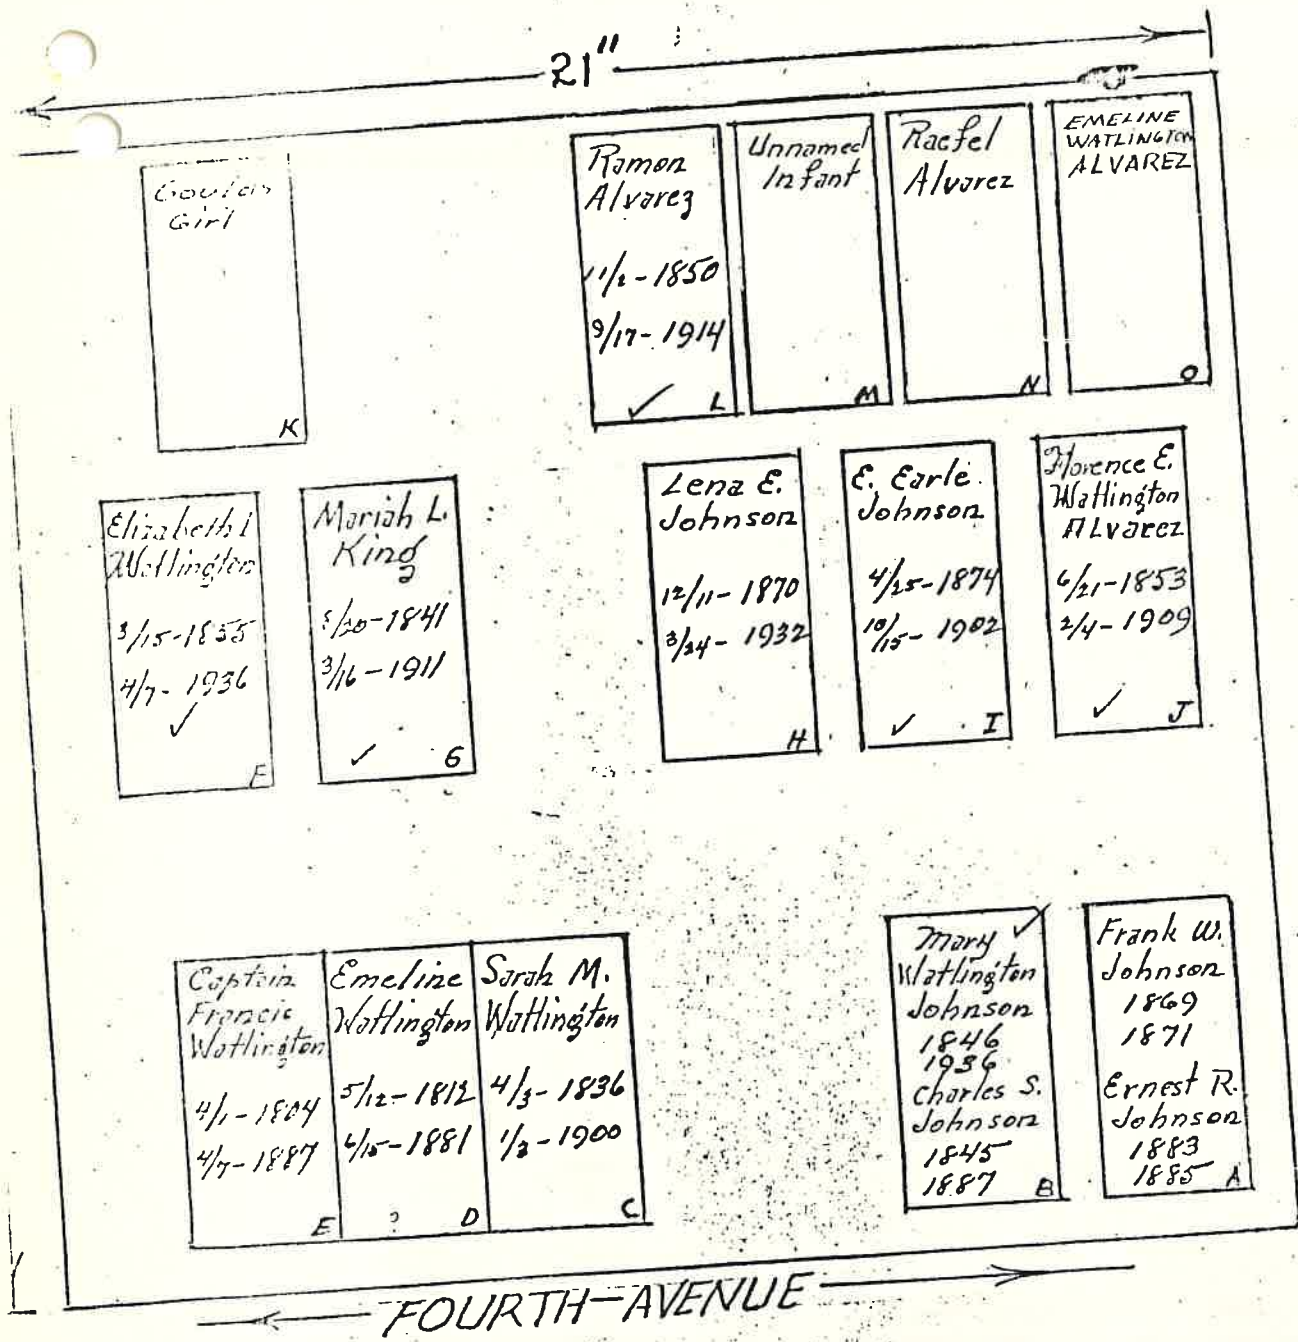 21"
Girl
K
Ramon
Alvarez
11/2-1850
9/17-1914
✓
L
Unnamed
Infant
M
Raefel
Alvarez
N
EMELINE
WATLINGTON
ALVAREZ
O
Elizabeth I
Watlington
3/15-1855
4/7-1936
✓
F
Mariah L.
King
/20-1841
3/16-1911
✓
G
Lena E.
Johnson
12/11-1870
3/24-1932
H
E. Earle
Johnson
4/25-1874
10/15-1902
✓
I
Florence E.
Watlington
ALvarez
6/21-1853
2/4-1909
✓
J
Captain
Francis
Watlington
4/1-1804
4/7-1887
E
Emeline
Watlington
5/12-1812
6/15-1881
?
D
Sarah M.
Watlington
4/3-1836
1/3-1900
C
Mary ✓
Watlington
Johnson
1846
1936
Charles S.
Johnson
1845
1887
B
Frank W.
Johnson
1869
1871
Ernest R.
Johnson
1883
1885
A
FOURTH-AVENUE